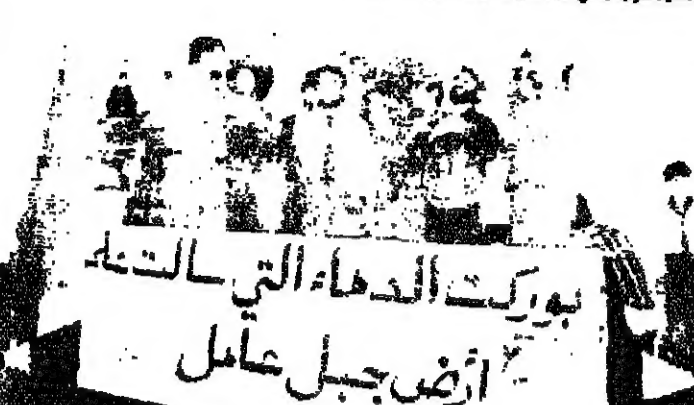 بوركت الدماء التي سالت على
أرض جبل عامل